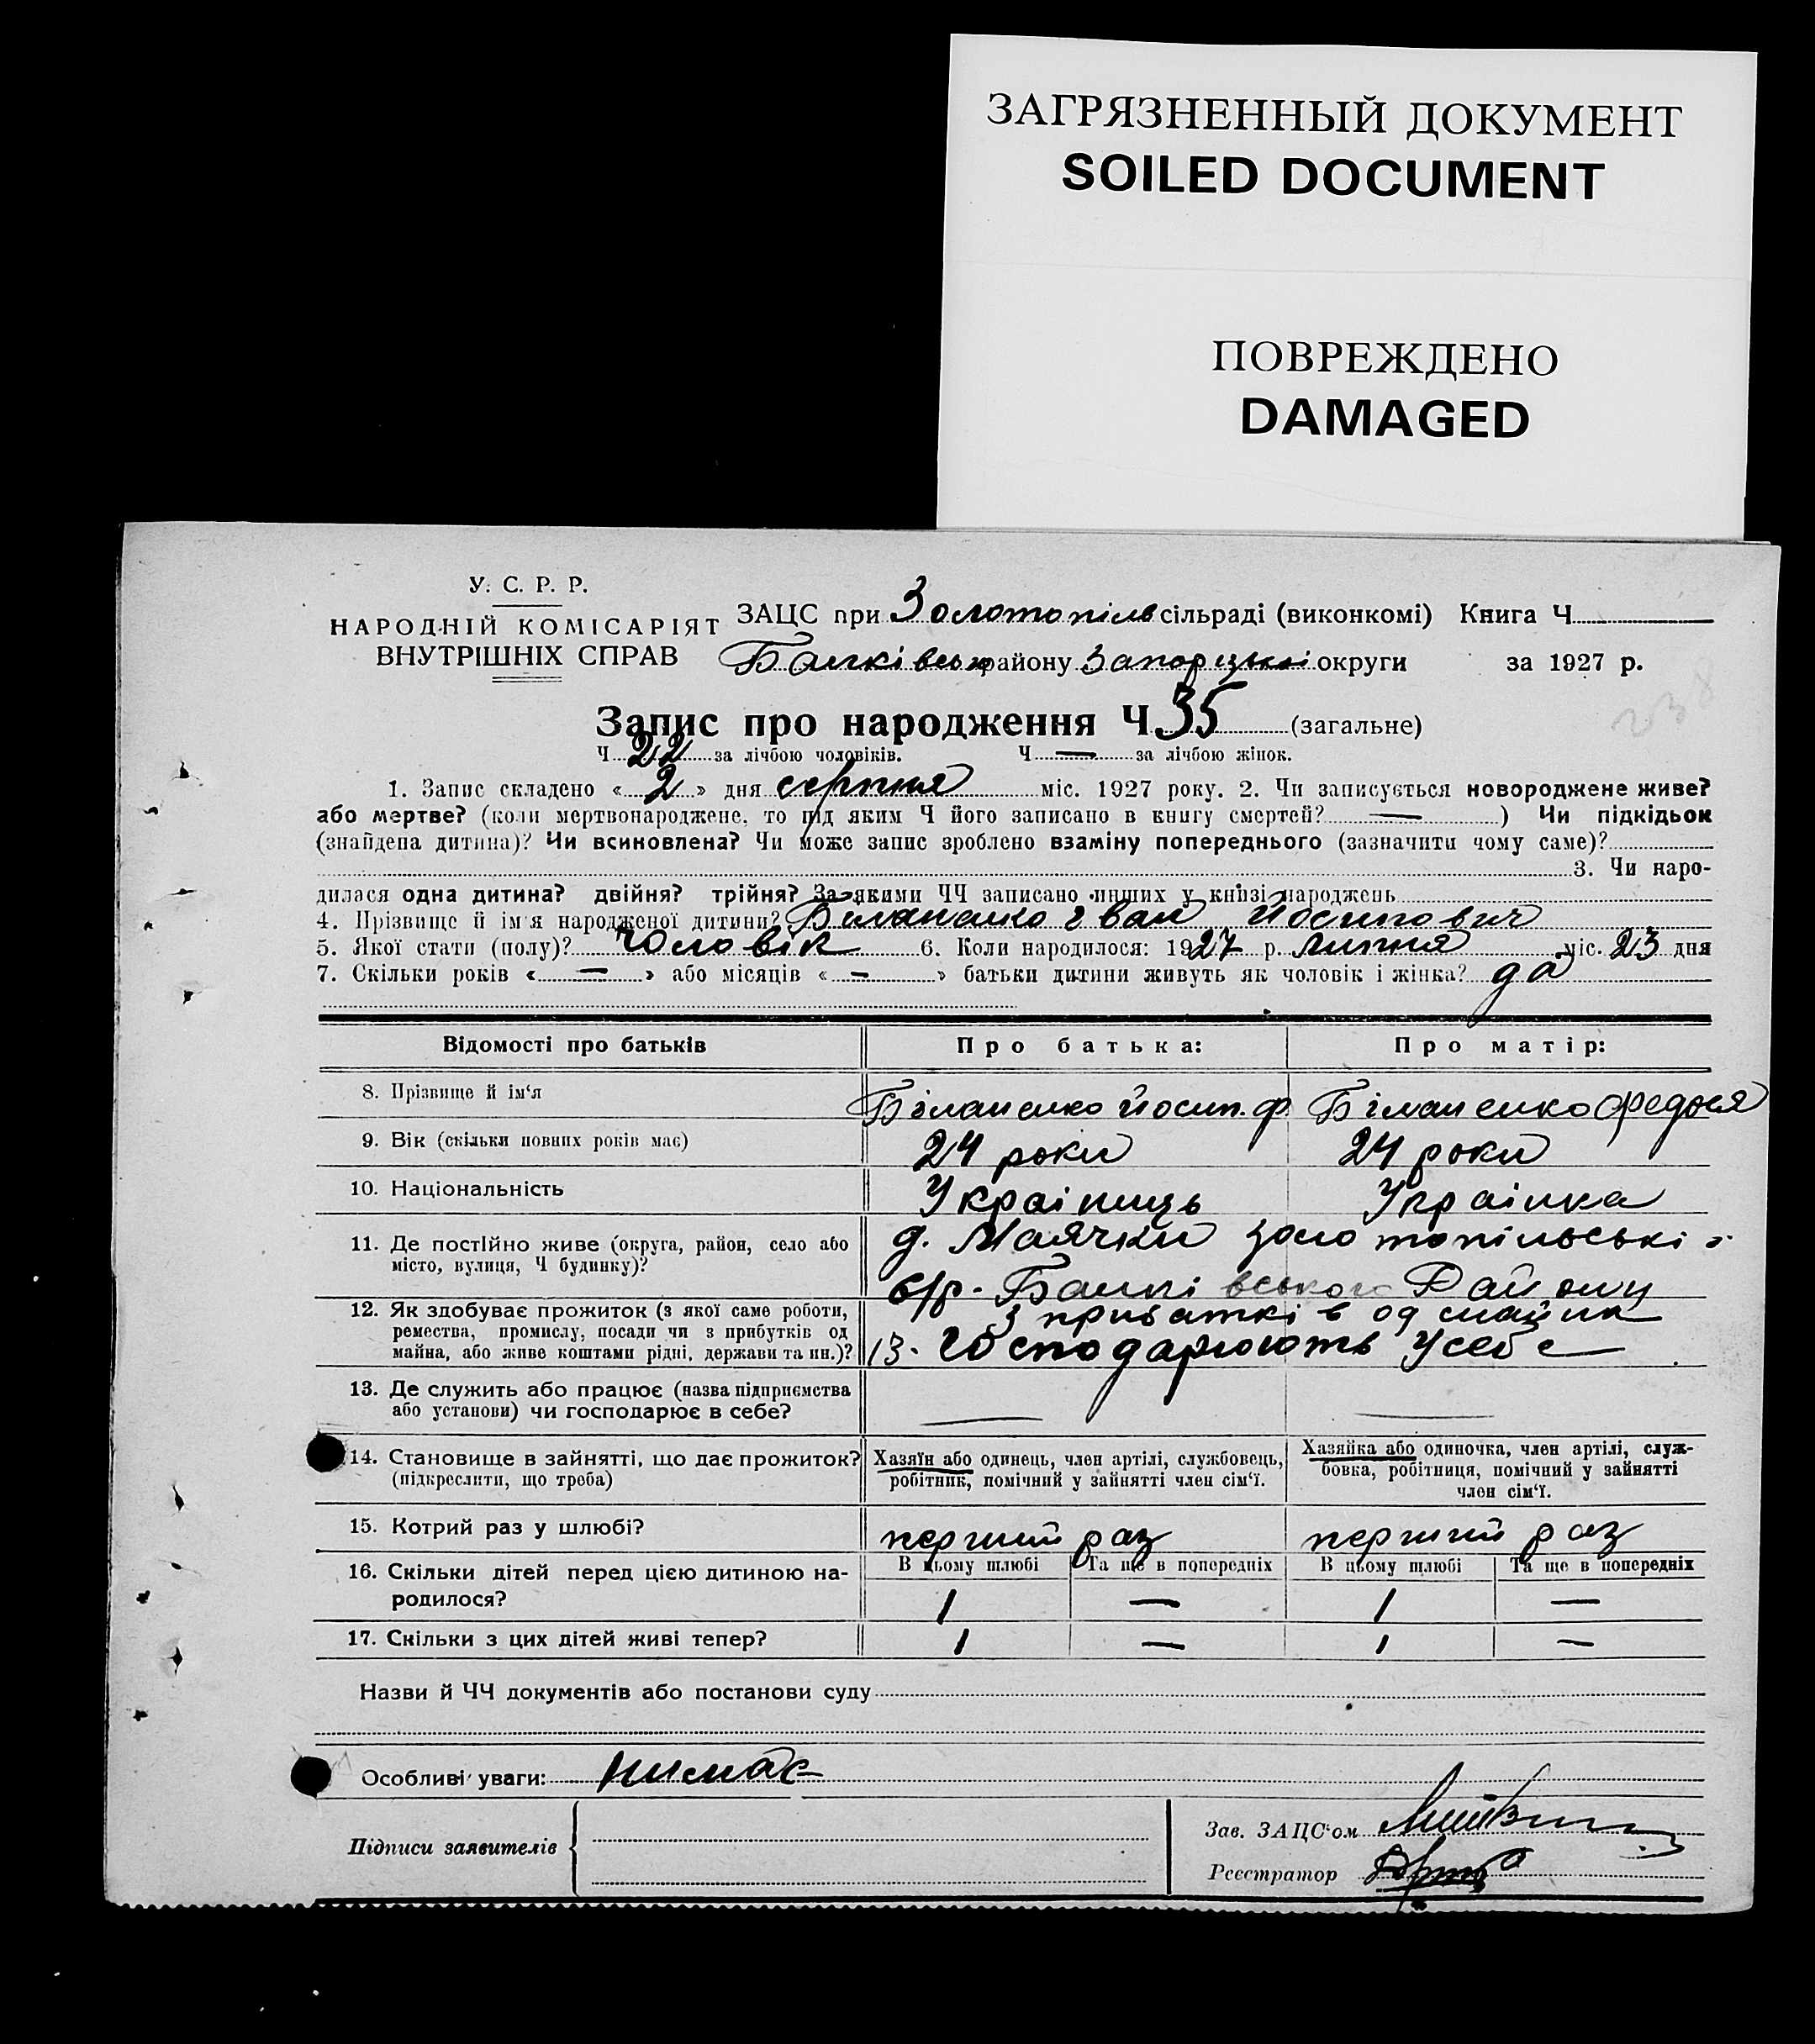 ЗАГРЯЗНЕННЫЙ ДОКУМЕНТ
SOILED DOCUMENT
ПОВРЕЖДЕНО
DAMAGED
У. С. Р. Р.
НАРОДНІЙ КОМІСАРІЯТ
ВНУТРІШНІХ СПРАВ
ЗАЦС при Золотопіль сільраді (виконкомі) Книга Ч.
району Запорізькі округи за 1927 р.
Запис про народження Ч. 35 (загальне)
Ч. 22 за лічбою чоловіків. Ч. — за лічбою жінок.
1. Запис складено « 2 » дня серпня міс. 1927 року. 2. Чи записується новороджене живе?
або мертве? (коли мертвонароджене, то під яким Ч його записано в книгу смертей? — ) Чи підкідьок
(знайдена дитина)? Чи всиновлена? Чи може запис зроблено взаміну попереднього (зазначити чому саме)?
3. Чи наро-
дилася одна дитина? двійня? трійня? За якими ЧЧ записано инших у книзі народжень
4. Прізвище й ім'я народженої дитини? Біланенко Іван Йосипович
5. Якої стати (полу)? чоловік 6. Коли народилося: 1927 р. липня міс. 23 дня
7. Скільки років « — » або місяців « — » батьки дитини живуть як чоловік і жінка? да
Відомості про батьків Про батька: Про матір:
8. Прізвище й ім'я Біланенко Йосип. Ф. Біланенко Федося
9. Вік (скільки повних років має) 24 роки 24 роки
10. Національність Українець Українка
11. Де постійно живе (округа, район, село або
місто, вулиця, Ч будинку)?
д. Маячки золотопільські
с/р. Району
12. Як здобуває прожиток (з якої саме роботи,
ремества, промислу, посади чи з прибутків од
майна, або живе коштами рідні, держави та ин.)?
13. Господарюють у себе
13. Де служить або працює (назва підприємства
або установи) чи господарює в себе? — —
14. Становище в зайнятті, що дає прожиток?
(підкреслити, що треба)
Хазяїн або одинець, член артілі, службовець,
робітник, помічний у зайнятті член сім'ї.
Хазяйка або одиночка, член артілі, служ-
бовка, робітниця, помічний у зайнятті
член сім'ї.
15. Котрий раз у шлюбі? перший раз перший раз
В цьому шлюбі Та ще в попередніх В цьому шлюбі Та ще в попередніх
16. Скільки дітей перед цією дитиною на-
родилося? 1 — 1 —
17. Скільки з цих дітей живі тепер? 1 — 1 —
Назви й ЧЧ документів або постанови суду
Особливі уваги: нимає
Підписи заявителів
Зав. ЗАЦС'ом
Реєстратор